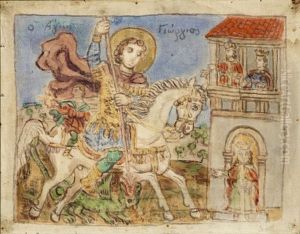 Ο Άγιος Γεώργιος